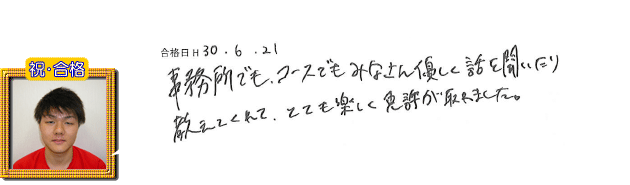 合格日 H 30.6.21
祝・合格
事務所でも、コースでもみなさん優しく話を聞いたり
教えてくれて、とても楽しく免許が取れました。